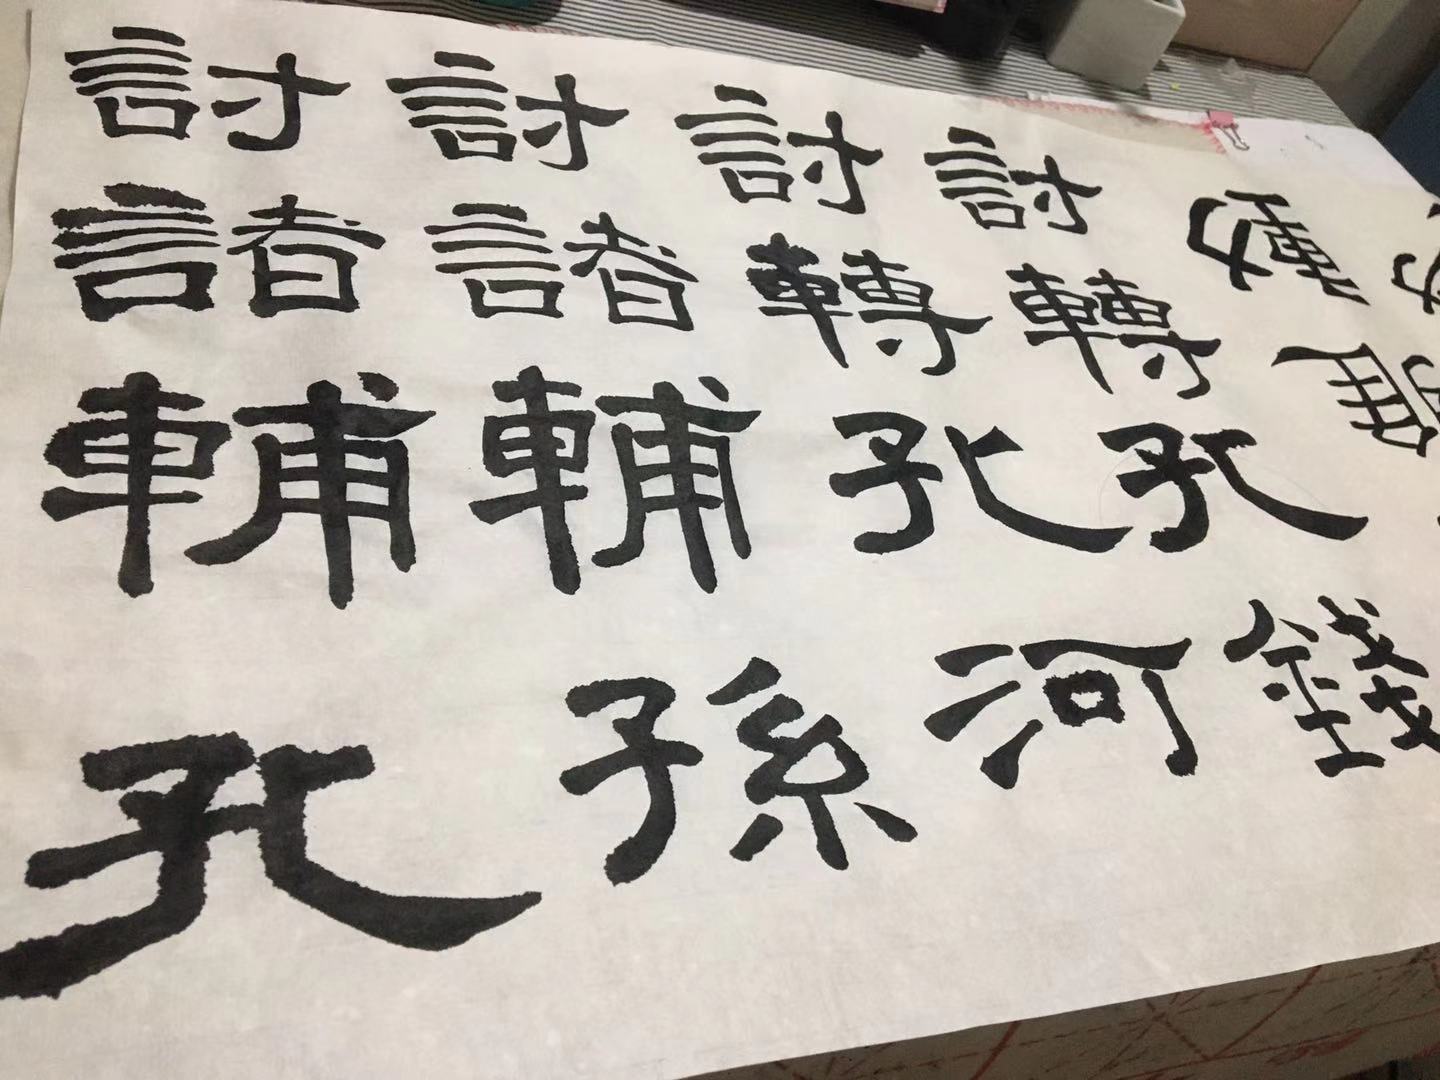 討 討 討 討
諸 諸 轉 轉
輔 輔 孔 孔
孔 孫 河 錢